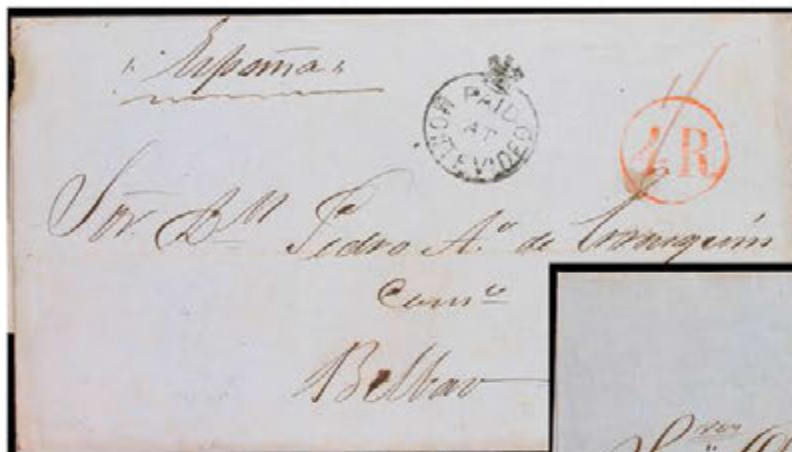 "España"
PAID
AT
MONTEVIDEO
4 R
Sor. Dn Pedro A.º de
Comº
Bilbao